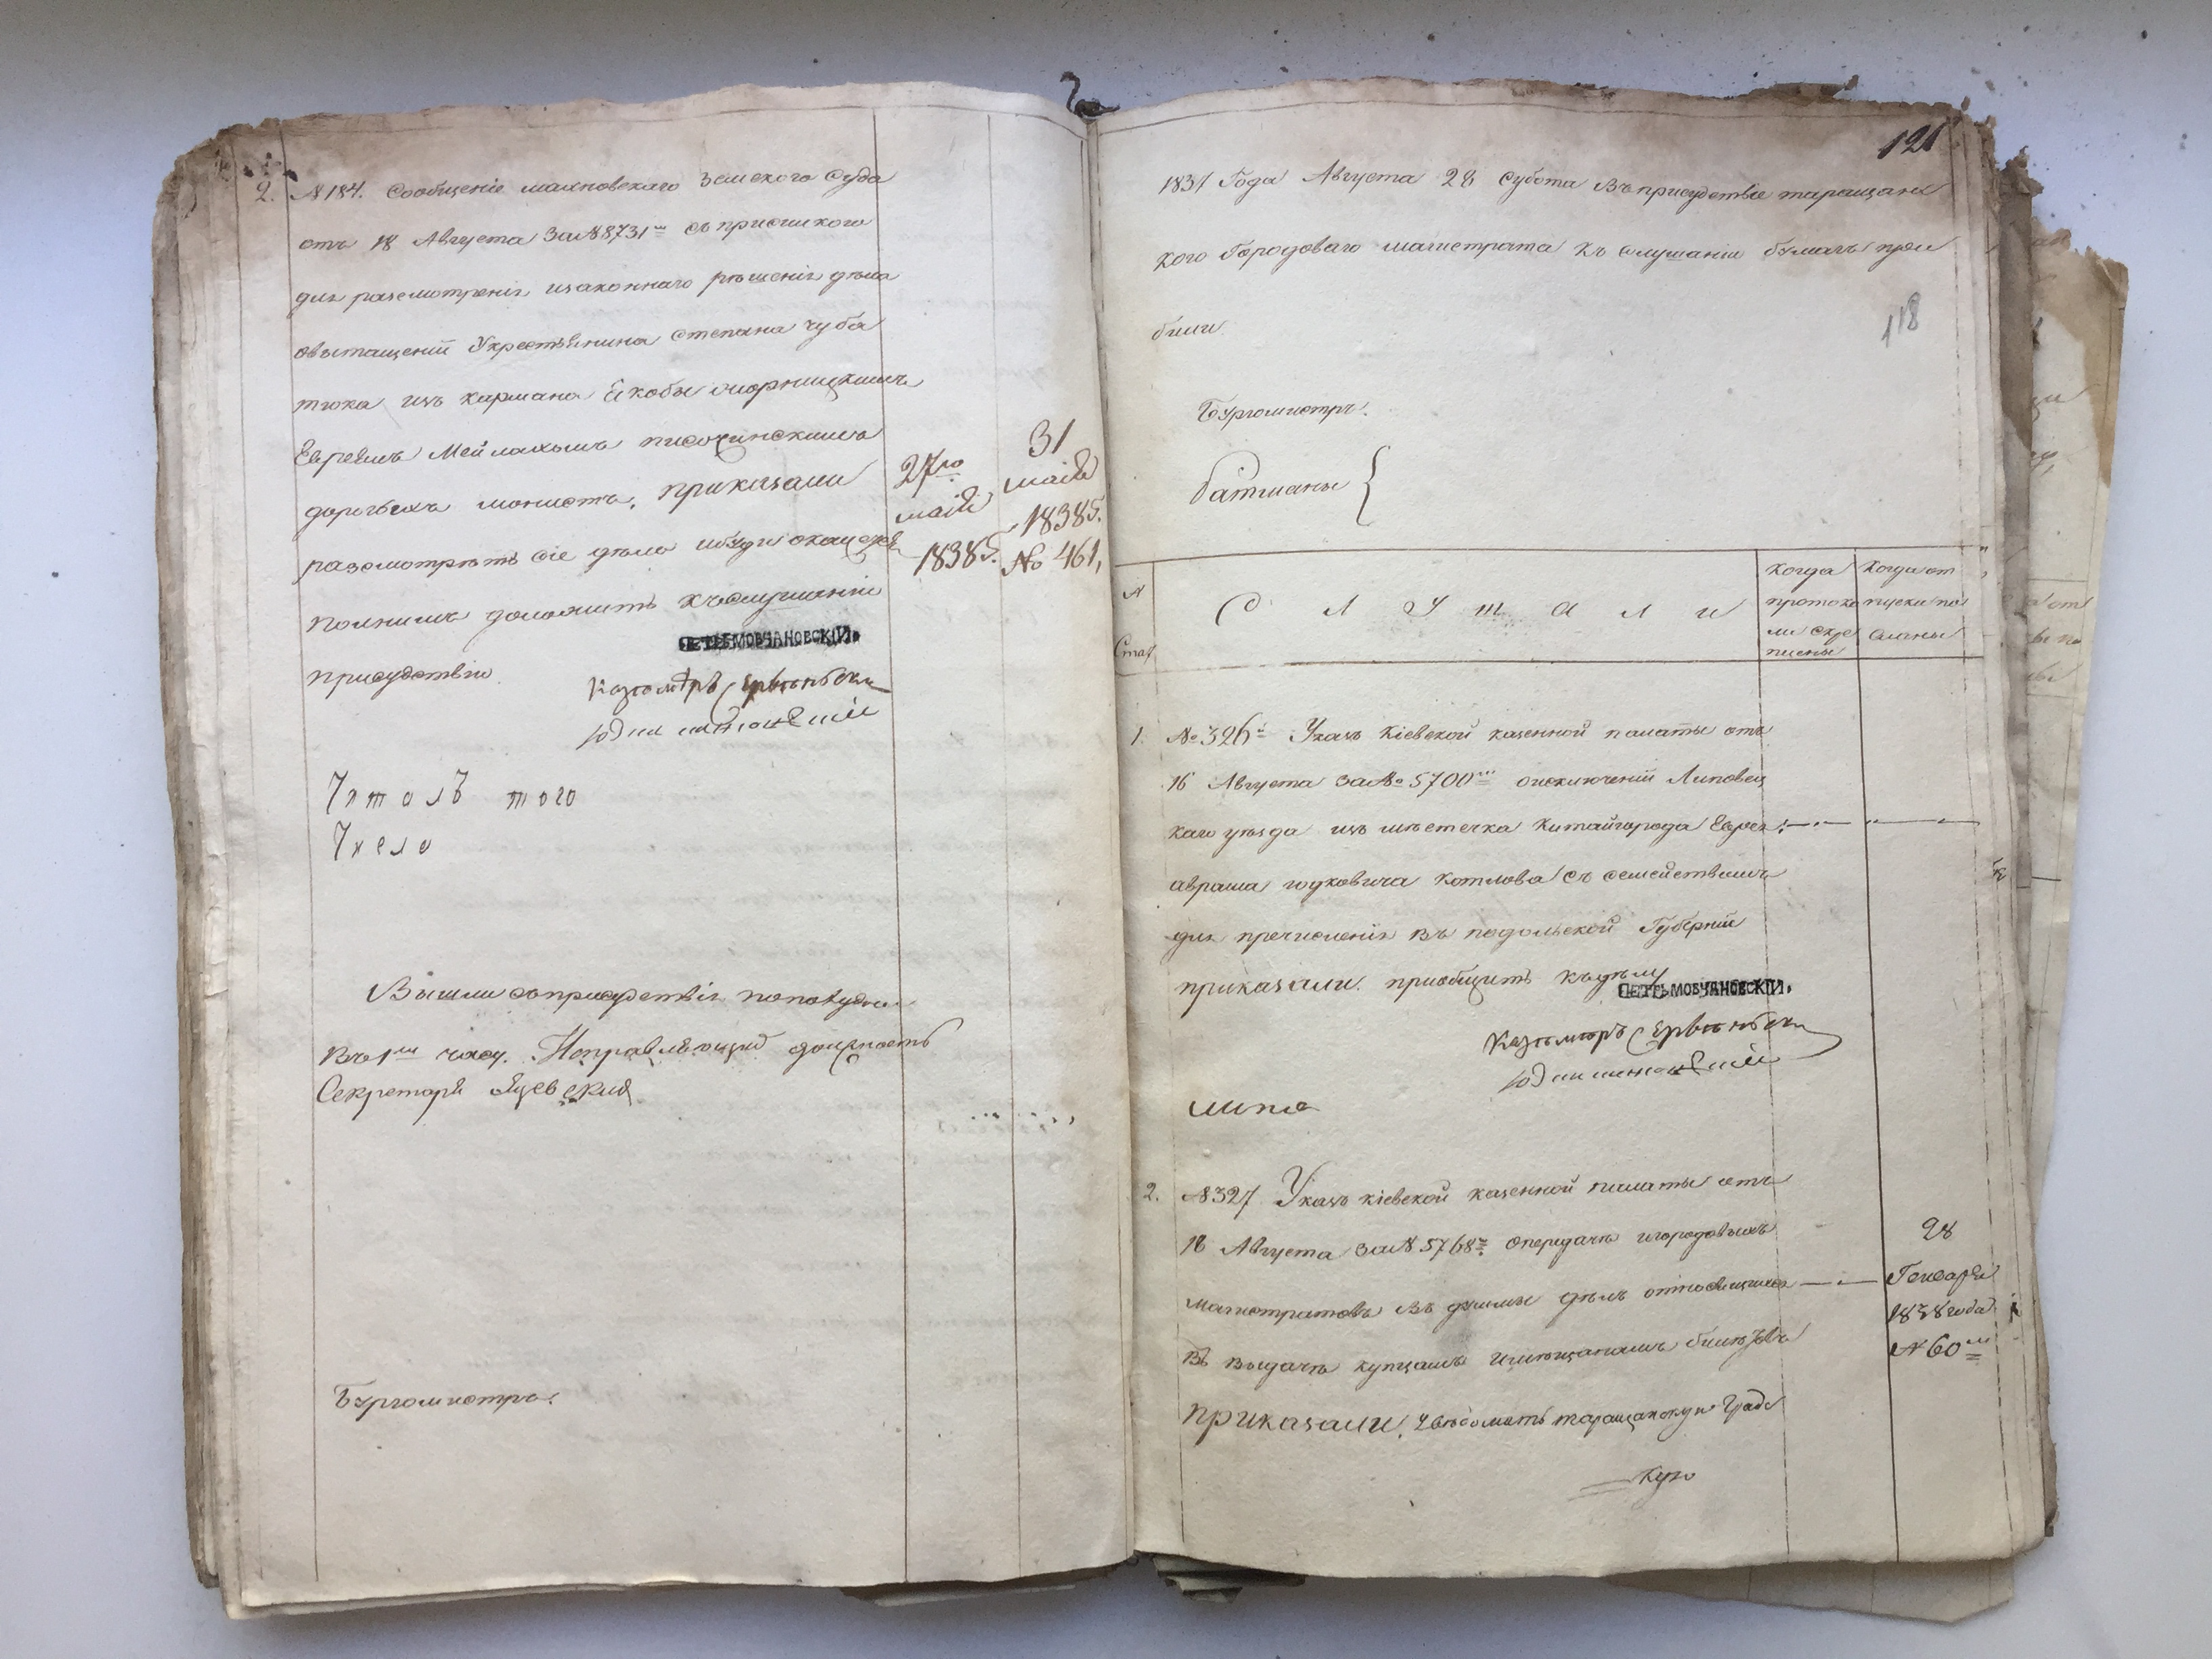 2. №184. Сообщеніе махновскаго Земского Суда
отъ 18 Августа за №8731 съ присилкою
для разсмотренія изаконнаго рѣшенія дѣла
овытащеніи Укрестьянина Степана чуба
тюка изъ кармана Якобы
Евреемъ Мейлахомъ писочинскимъ
монистъ, приказали
разсмотрѣть сіе дѣло
доложить къслушанію
присудствію
27го
маія
1838г.
31
маія
1838г.
№ 461,
ПЕТРЪ МОВЧАНОВСКІЙ.
Читалъ того
Числа
Вышли съприсудствія пополудни
въ 1м часу. Исправляющій должность
Секретаря
Бургомистръ.
121
118
1837 Года Августа 28 Субота Въприсудствіе таращанс
кого Городоваго магистрата къ слушанію бумагъ при
били
Бургомистръ.
Ратманы {
№
Стат
С л у ш а л и
когда
протоко
ли скре
плены
Когда от
пуски по
сланы
1. №326й Указъ Кіевской казенной палаты отъ
16 Августа за № 5700м оисключеніи Липовец
каго уѣзда изъ мѣстечка Китайгорода Еврея
аврама юдковича котлова съ семействомъ
для пречисленія въ подольской Губерніи
приказали. приобщить къдѣлу
ПЕТРЪ МОВЧАНОВСКІЙ.
2. №327 Указъ кіевской казенной палаты отъ
18 Августа за № 5768м опередачѣ изгородовыхъ
магистратовъ въ думы дѣлъ относящихся
въ выдачѣ купцамъ имѣщанамъ билетовъ
приказали, увѣдомить таращанскую Градс
кую
28
Генваря
1838 года
№60м